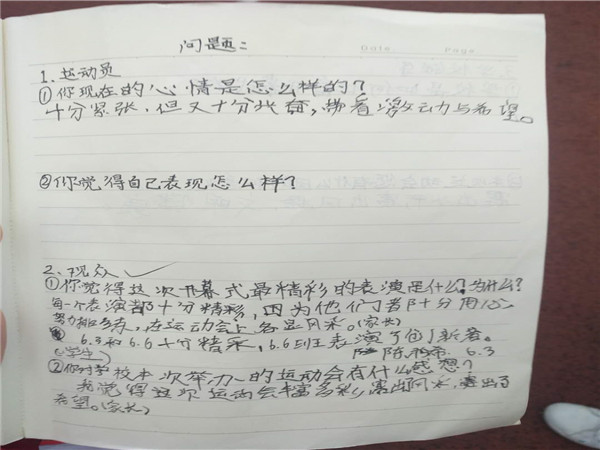 问题:
Date Page
1. 运动员
①你现在的心情是怎么样的?
十分紧张,但又十分兴奋,带着激动力与希望。
②你觉得自己表现怎么样?
2、观众 ✓
①你觉得这次开幕式最精彩的表演是什么?为什么?
每一个表演都十分精彩,因为他们都十分用心
努力,在运动会上各显风采。(家长)
6.3和6.6十分精采,6.6班表演了
6.3
(学生)
②你对学校本次举办的运动会有什么感想?
我觉得这次运动会丰富多彩,赛出风水,赛出了
希望。(家长)